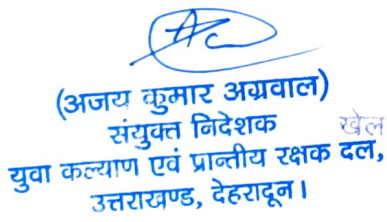 (अजय कुमार अग्रवाल)
संयुक्त निदेशक खेल
युवा कल्याण एवं प्रान्तीय रक्षक दल,
उत्तराखण्ड, देहरादून।